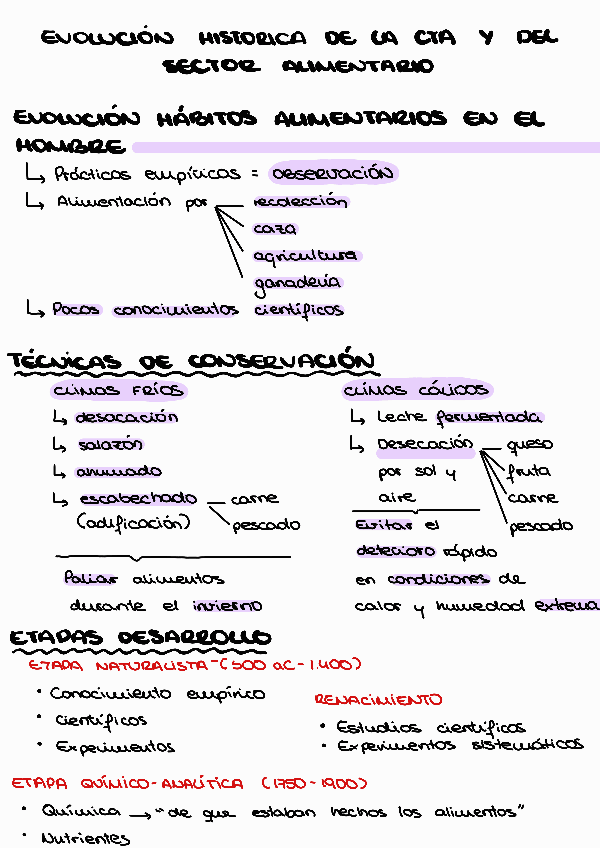 EVOLUCIÓN HISTORICA DE LA CTA Y DEL
SECTOR ALIMENTARIO
EVOLUCIÓN HÁBITOS ALIMENTARIOS EN EL
HOMBRE
↳ Prácticas empíricas = OBSERVACIÓN
↳ Alimentación por recolección
caza
agricultura
ganadería
↳ Pocos conocimientos científicos
TÉCNICAS DE CONSERVACIÓN
CLIMAS FRÍOS
↳ desacación
↳ salazón
↳ ahumado
↳ escabechado carne
(adificación) pescado
Paliar alimentos
durante el invierno
CLÍMAS CÁLIDOS
↳ Leche fermentada
↳ Desecación queso
por sol y fruta
aire carne
pescado
Evitar el
deterioro rápido
en condiciones de
calor y humedad extrema
ETAPAS DESARROLLO
ETAPA NATURALISTA (500 aC - 1.400)
• Conocimiento empírico
• científicos
• Experimentos
RENACIMIENTO
• Estudios científicos
• Experimentos sistemáticos
ETAPA QUÍMICO-ANALÍTICA (1750-1900)
• Química → "de que estaban hechos los alimentos"
• Nutrientes